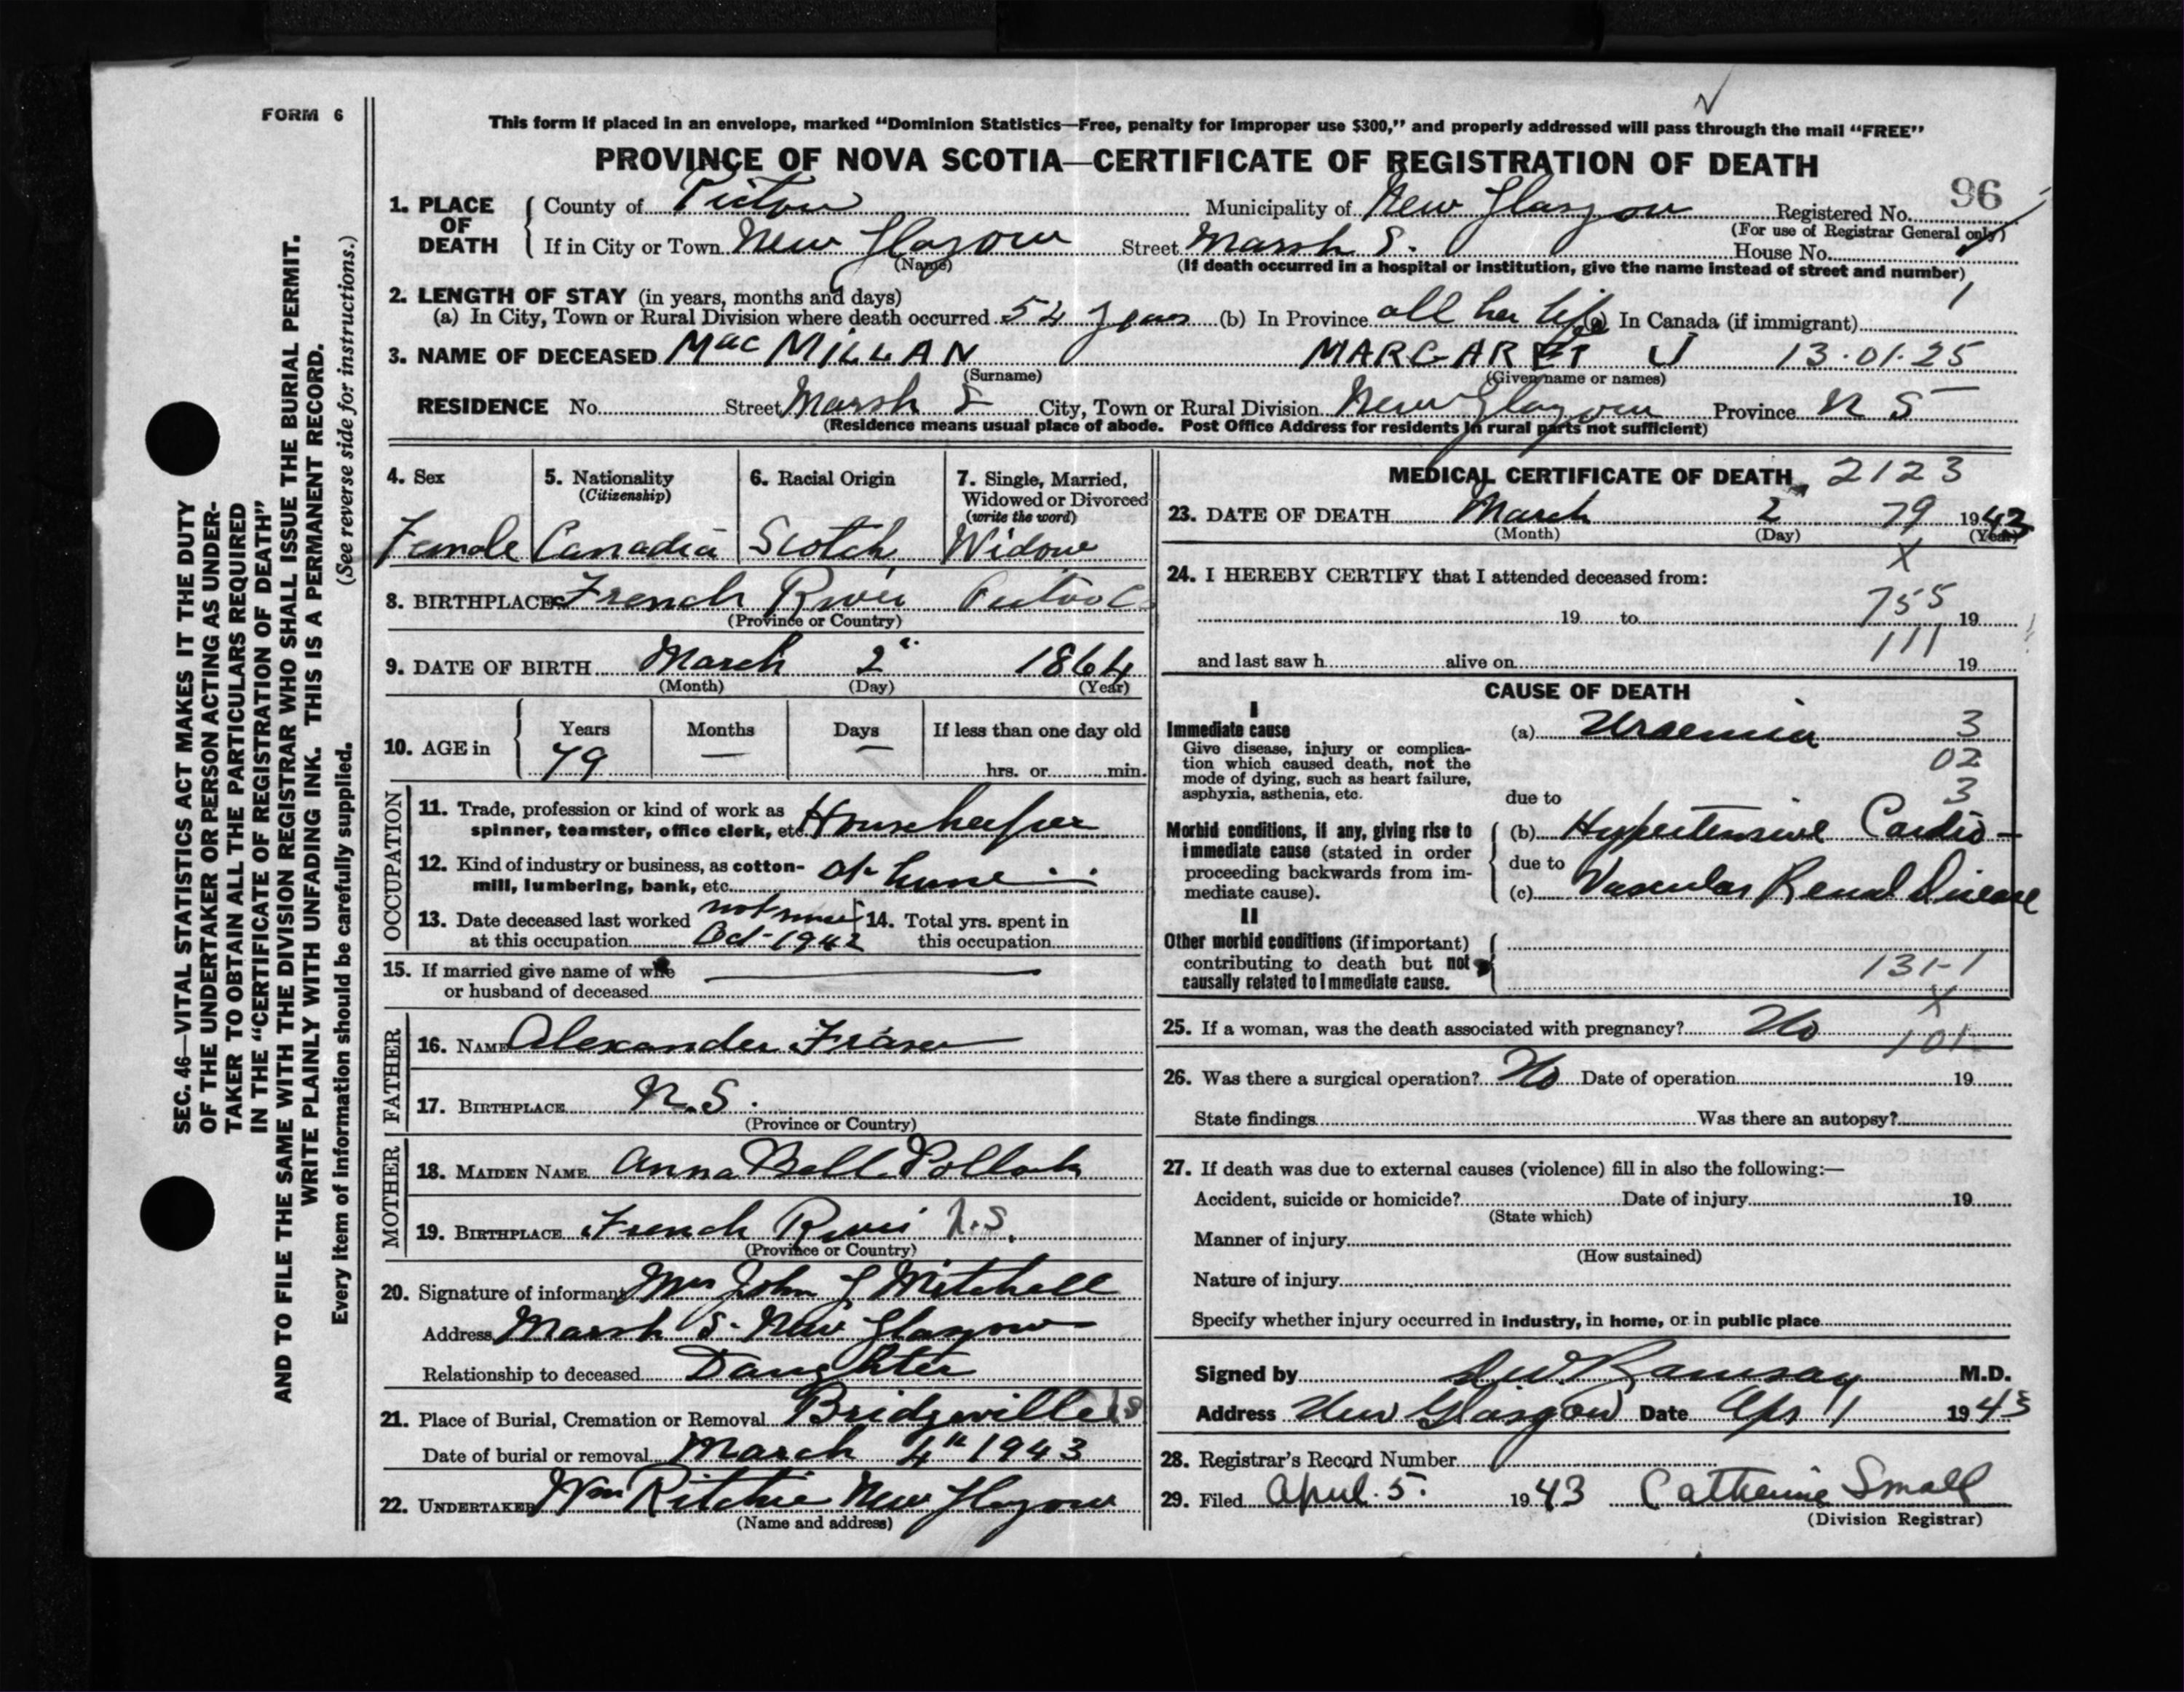 FORM 6
This form if placed in an envelope, marked "Dominion Statistics—Free, penalty for improper use $300," and properly addressed will pass through the mail "FREE"
PROVINCE OF NOVA SCOTIA—CERTIFICATE OF REGISTRATION OF DEATH
96
1. PLACE OF DEATH County of Pictou Municipality of New Glasgow Registered No.
(For use of Registrar General only)
If in City or Town New Glasgow Street Marsh S. House No.
(Name)
(If death occurred in a hospital or institution, give the name instead of street and number)
2. LENGTH OF STAY (in years, months and days) 1
(a) In City, Town or Rural Division where death occurred 54 years (b) In Province all her life (c) In Canada (if immigrant)
3. NAME OF DECEASED MacMILLAN MARGARET J 13.01.25
(Surname) (Given name or names)
RESIDENCE No. Street Marsh S City, Town or Rural Division New Glasgow Province N S
(Residence means usual place of abode. Post Office Address for residents in rural parts not sufficient)
SEC. 46—VITAL STATISTICS ACT MAKES IT THE DUTY
OF THE UNDERTAKER OR PERSON ACTING AS UNDER-
TAKER TO OBTAIN ALL THE PARTICULARS REQUIRED
IN THE "CERTIFICATE OF REGISTRATION OF DEATH"
AND TO FILE THE SAME WITH THE DIVISION REGISTRAR WHO SHALL ISSUE THE BURIAL PERMIT.
WRITE PLAINLY WITH UNFADING INK. THIS IS A PERMANENT RECORD.
Every item of information should be carefully supplied. (See reverse side for instructions.)
4. Sex 5. Nationality 6. Racial Origin 7. Single, Married,
(Citizenship) Widowed or Divorced
(write the word)
Female Canadia Scotch Widow
8. BIRTHPLACE French River Pictou C
(Province or Country)
9. DATE OF BIRTH March 2" 1864
(Month) (Day) (Year)
10. AGE in Years Months Days If less than one day old
79 — — hrs. or min.
OCCUPATION
11. Trade, profession or kind of work as
spinner, teamster, office clerk, etc. Housekeeper
12. Kind of industry or business, as cotton-
mill, lumbering, bank, etc. at home
13. Date deceased last worked not since 14. Total yrs. spent in
at this occupation Oct-1942 this occupation
15. If married give name of wife
or husband of deceased
FATHER
16. NAME Alexander Fraser
17. BIRTHPLACE N.S.
(Province or Country)
MOTHER
18. MAIDEN NAME Anna Bell Pollock
19. BIRTHPLACE French River N.S.
(Province or Country)
20. Signature of informant Mrs John J Mitchell
Address Marsh S. New Glasgow
Relationship to deceased Daughter
21. Place of Burial, Cremation or Removal Bridgeville
Date of burial or removal March 4th 1943
22. UNDERTAKER Wm Ritchie New Glasgow
(Name and address)
MEDICAL CERTIFICATE OF DEATH 2123
23. DATE OF DEATH March 2 79 1943
(Month) (Day) (Year)
X
24. I HEREBY CERTIFY that I attended deceased from:
755
19 to 19
111
and last saw h alive on 19
CAUSE OF DEATH
I
Immediate cause (a) Uraemia 3
Give disease, injury or complica-
tion which caused death, not the 02
mode of dying, such as heart failure,
asphyxia, asthenia, etc. due to 3
Morbid conditions, if any, giving rise to (b) Hypertensive Cardio-
immediate cause (stated in order
proceeding backwards from im- due to
mediate cause). (c) Vascular Renal Disease
II
Other morbid conditions (if important)
contributing to death but not 131-1
causally related to immediate cause.
X
25. If a woman, was the death associated with pregnancy? No 101
26. Was there a surgical operation? No Date of operation 19
State findings Was there an autopsy?
27. If death was due to external causes (violence) fill in also the following:—
Accident, suicide or homicide? Date of injury 19
(State which)
Manner of injury
(How sustained)
Nature of injury
Specify whether injury occurred in industry, in home, or in public place
Signed by Ramsay M.D.
Address New Glasgow Date Apr 1 1943
28. Registrar's Record Number
29. Filed April. 5. 1943 Catherine Small
(Division Registrar)